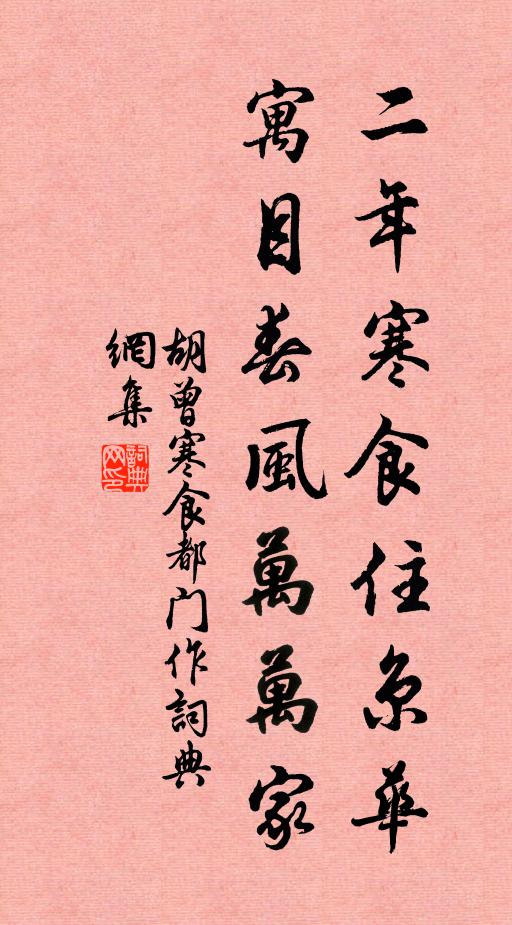 二年寒食住京華
寓目春風萬萬家
胡曾寒食都门作詞典
網集
詞典
网印